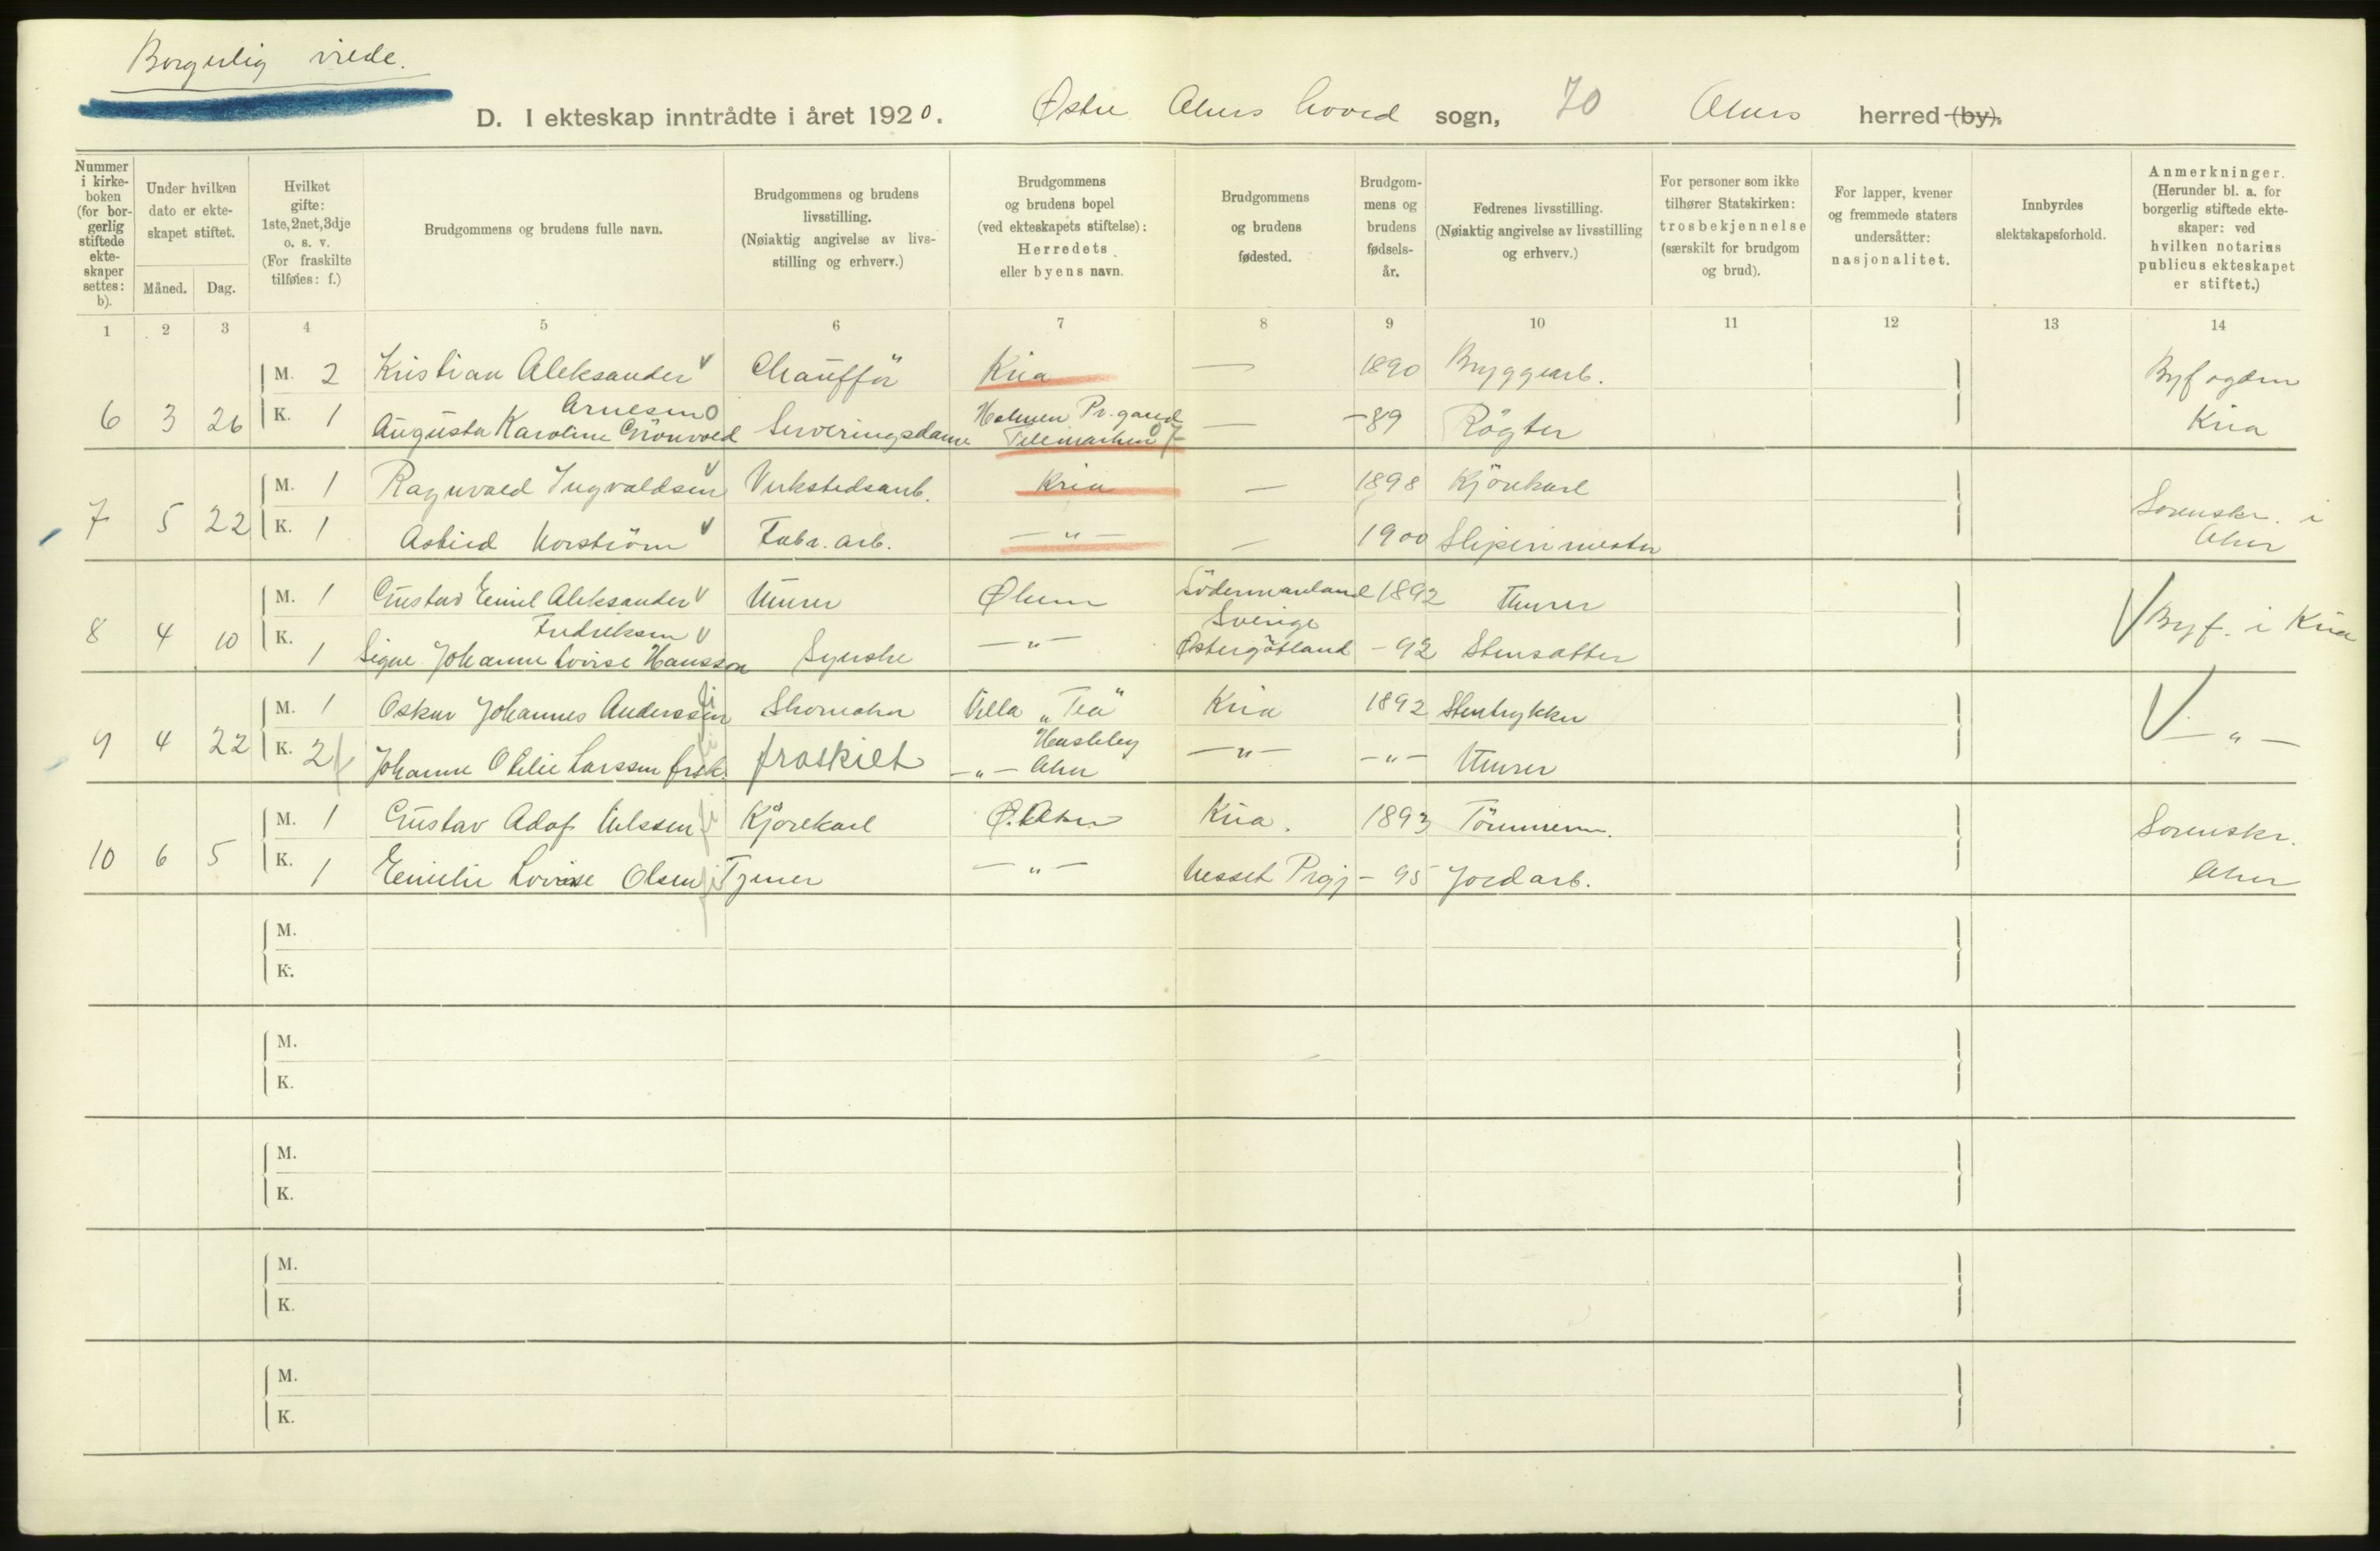 Borgerlig viede.
D. I ekteskap inntrådte i året 1920. Østre Akers hoved sogn, 70 Akers herred (by).
Nummer i kirke-boken (for bor-gerlig stiftede ekte-skaper settes: b).
Under hvilken dato er ekte-skapet stiftet.
Måned. Dag.
Hvilket gifte: 1ste, 2net, 3dje o. s. v. (For fraskilte tilføies: f.)
Brudgommens og brudens fulle navn.
Brudgommens og brudens livsstilling. (Nøiaktig angivelse av livs-stilling og erhverv.)
Brudgommens og brudens bopel (ved ekteskapets stiftelse): Herredets eller byens navn.
Brudgommens og brudens fødested.
Brudgom-mens og brudens fødsels-år.
Fedrenes livsstilling. (Nøiaktig angivelse av livsstilling og erhverv.)
For personer som ikke tilhører Statskirken: trosbekjennelse (særskilt for brudgom og brud).
For lapper, kvener og fremmede staters undersåtter: nasjonalitet.
Innbyrdes slektskapsforhold.
Anmerkninger. (Herunder bl. a. for borgerlig stiftede ekte-skaper: ved hvilken notarius publicus ekteskapet er stiftet.)
1 2 3 4 5 6 7 8 9 10 11 12 13 14
M. 2 Kristian Aleksander Chaufför Kria — 1890 Bryggearb. Byfogden
Arnesen
6 3 26 K. 1 Augusta Karoline Grönvold Serveringsdame Holmen Pr.gaard Telemarken — -89 Rögter Kria
M. 1 Ragnvald Ingvaldsen Verkstedsarb. Kria — 1898 Kjörekarl Sorenskr. i
7 5 22 K. 1 Astrid Norström Fabr. arb. — " — — 1900 Sliperimester Aker
M. 1 Gustav Emil Aleksander Murer Ø Södermanland 1892 Murer
Fredriksen Sverige Byf. i Kria
8 4 10 K. 1 Signe Johanne Lovise Hansson Syerske — " — Östergötland - 92 Stensatter
M. 1 Oskar Johannes Anderssen Skomaker Villa "Tea" Kria 1892 Stentrykker
9 4 22 K. 2 f Johanne Otilie Larssen frsk. fraskilt — " — Aker — " — — " — Murer — " —
M. 1 Gustav Adof Nilssen Kjörekarl Ø. Aker Kria. 1893 Tömmerm. Sorenskr.
10 6 5 K. 1 Emilie Lovise Olsen Tjener — " — Nesset Prgj - 95 Jordarb. Aker
M.
K.
M.
K.
M.
K.
M.
K.
M.
K.